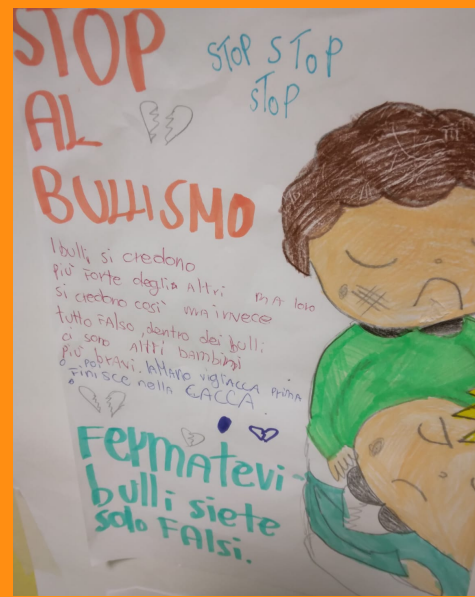 STOP
AL
BULLISMO
STOP STOP
STOP
I bulli si credono
più forte deglia altri ma loro
si credono così ma invece
tutto FALSO, dentro dei bulli
ci sono altri bambini
più bravi.
vigliacca prima
o poi
finisce nella CACCA.
Fermatevi-
bulli siete
solo FAlsi.